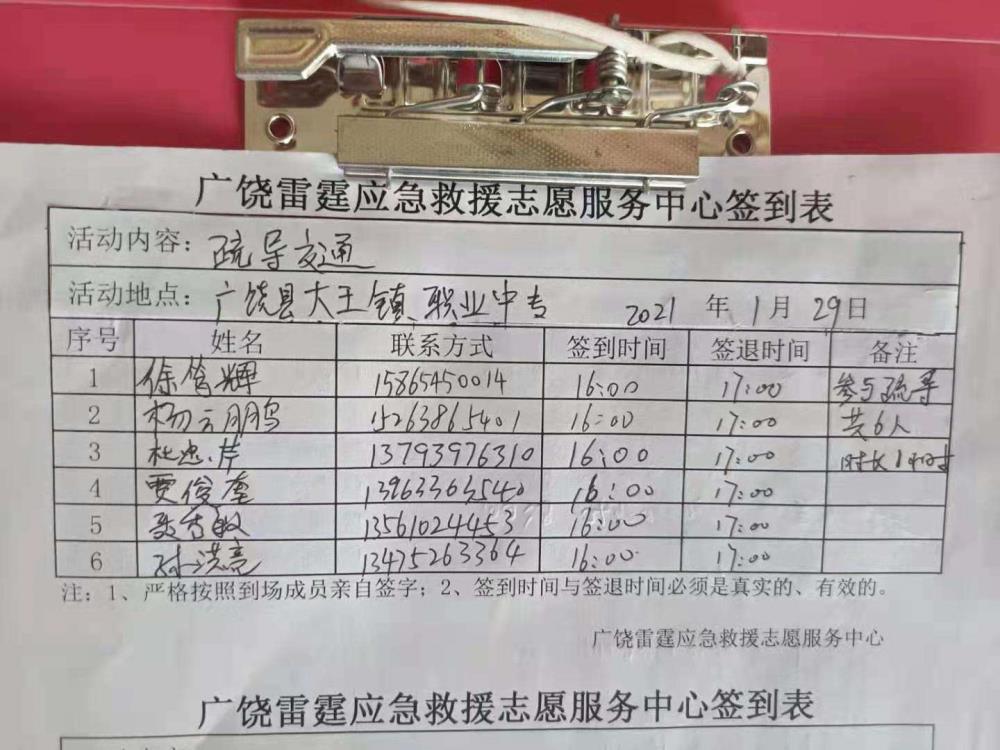 广饶雷霆应急救援志愿服务中心签到表
活动内容：疏导交通
活动地点：广饶县大王镇职业中专 2021 年 1 月 29 日
序号 姓名 联系方式 签到时间 签退时间 备注
1 徐 辉 15865450014 16:00 17:00 参与疏导
2 杨云鹏 15263865401 16:00 17:00 共6人
3 杜忠 13793976310 16:00 17:00 时长1小时
4 贾俊 13963363540 16:00 17:00
5 13561024453 16:00 17:00
6 孙洪亮 13475263364 16:00 17:00
注：1、严格按照到场成员亲自签字；2、签到时间与签退时间必须是真实的、有效的。
广饶雷霆应急救援志愿服务中心
广饶雷霆应急救援志愿服务中心签到表